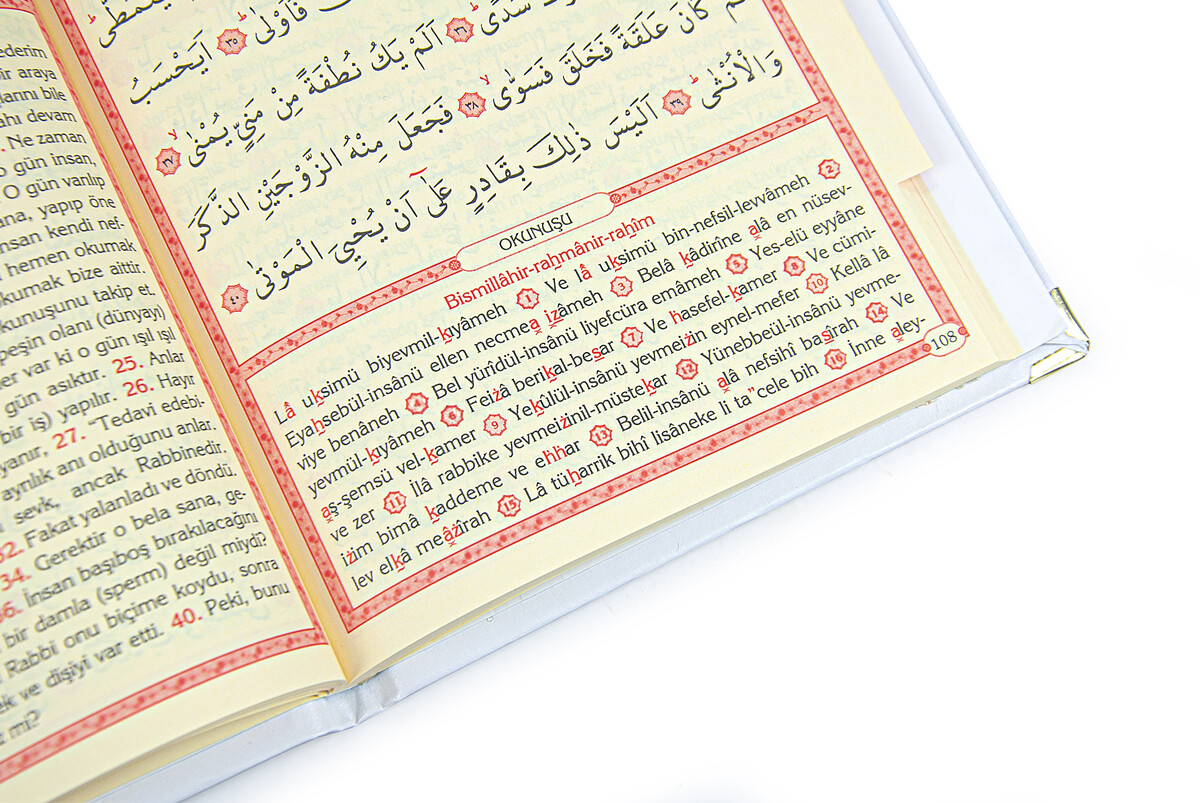 ederim
bir araya
larını bile
ahı devam
. Ne zaman
o gün insan,
O gün varılıp
ana, yapıp öne
nsan kendi nef-
hemen okumak
kumak bize aittir.
kunuşunu takip et.
peşin olanı (dünyayı)
er var ki o gün ışıl ışıl
gün asıktır. 25. Anlar
bir iş) yapılır. 26. Hayır
yanır, 27. “Tedavi edebi-
ayrılık anı olduğunu anlar.
sevk, ancak Rabbinedir.
32. Fakat yalanladı ve döndü.
34. Gerektir o bela sana, ge-
36. İnsan başıboş bırakılacağını
bir damla (sperm) değil miydi?
Rabbi onu biçime koydu, sonra
ek ve dişiyi var etti. 40. Peki, bunu
mi?
فَاَوْلٰىۜ ﴿٣٥﴾ اَيَحْسَبُ
سُدًىۜ ﴿٣٦﴾ اَلَمْ يَكُ نُطْفَةً مِنْ مَنِيٍّ يُمْنٰىۙ ﴿٣٧﴾
كَانَ عَلَقَةً فَخَلَقَ فَسَوّٰىۙ ﴿٣٨﴾ فَجَعَلَ مِنْهُ الزَّوْجَيْنِ الذَّكَرَ
وَالْاُنْثٰىۜ ﴿٣٩﴾ اَلَيْسَ ذٰلِكَ بِقَادِرٍ عَلٰٓى اَنْ يُحْيِيَ الْمَوْتٰى ﴿٤٠﴾
OKUNUŞU
Bismillâhir-rahmânir-rahîm
Lâ uksimü biyevmil-kıyâmeh 1 Ve lâ uksimü bin-nefsil-levvâmeh 2
Eyahsebül-insânü ellen necmea izâmeh 3 Belâ kâdirîne alâ en nüsev-
viye benâneh 4 Bel yürîdül-insânü liyefcüra emâmeh 5 Yes-elü eyyâne
yevmül-kıyâmeh 6 Feiżâ berikal-besar 7 Ve hasefel-kamer 8 Ve cümi-
aş-şemsü vel-kamer 9 Yekûlül-insânü yevmeiżin eynel-mefer 10 Kellâ lâ
ve zer 11 İlâ rabbike yevmeiżinil-müstekar 12 Yünebbeül-insânü yevme-
iżim bimâ kaddeme ve ehhar 13 Belil-insânü alâ nefsihî basîrah 14 Ve
lev elkâ meâżîrah 15 Lâ tüharrik bihî lisâneke li ta”cele bih 16 İnne aley-
108